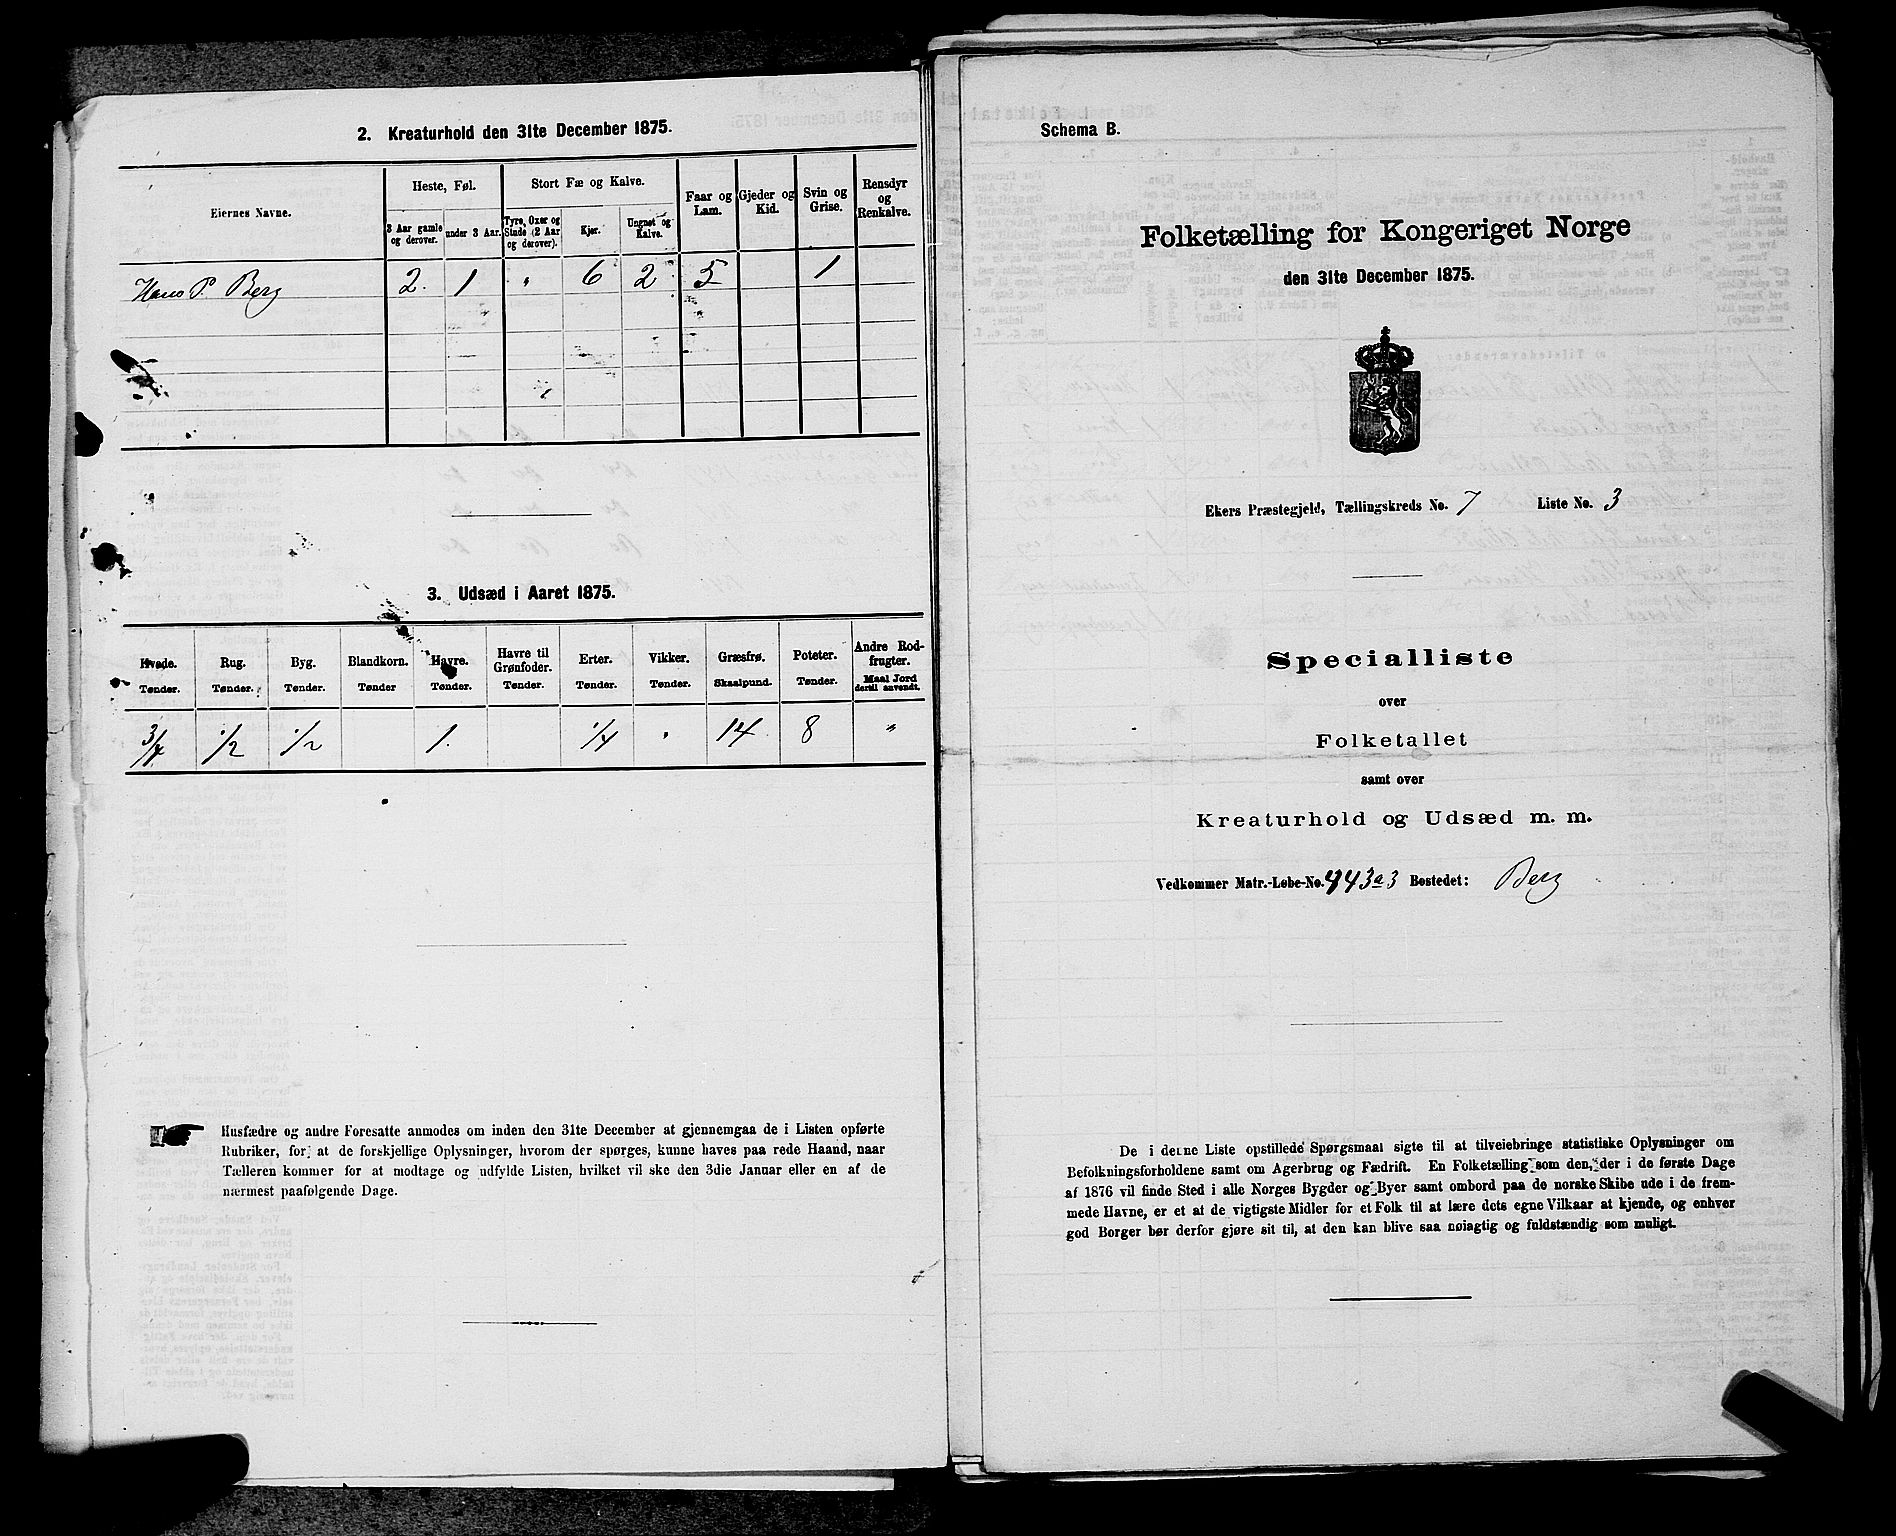 2. Kreaturhold den 31te December 1875.
Eiernes Navne.
Heste, Føl.
Stort Fæ og Kalve.
Faar og Lam.
Gjeder og Kid.
Svin og Grise.
Rensdyr og Renkalve.
3 Aar gamle og derover.
under 3 Aar.
Tyre, Oxer og Stude (2 Aar og derover).
Kjør.
Ungnøt og Kalve.
Hans P. Berg 2. 1 " 6 2 5 1
3. Udsæd i Aaret 1875.
Hvede. Rug. Byg. Blandkorn. Havre. Havre til Grønfoder. Erter. Vikker. Græsfrø. Poteter. Andre Rodfrugter.
Tønder. Tønder. Tønder. Tønder Tønder. Tønder. Tønder. Tønder. Skaalpund. Tønder. Maal Jord dertil anvendt.
3/4 1/2 1/2 1. 1/4 " 14 8 "
Husfædre og andre Foresatte anmodes om inden den 31te December at gjennemgaa de i Listen opførte
Rubriker, for at de forskjellige Oplysninger, hvorom der spørges, kunne haves paa rede Haand, naar
Tælleren kommer for at modtage og udfylde Listen, hvilket vil ske den 3die Januar eller en af de
nærmest paafølgende Dage.
Schema B.
Folketælling for Kongeriget Norge
den 31te December 1875.
Ekers Præstegjeld, Tællingskreds No. 7 Liste No. 3
Specialliste
over
Folketallet
samt over
Kreaturhold og Udsæd m. m.
Vedkommer Matr.-Løbe-No. 443a3 Bostedet: Berg
De i denne Liste opstillede Spørgsmaal sigte til at tilveiebringe statistiske Oplysninger om
Befolkningsforholdene samt om Agerbrug og Fædrift. En Folketælling som den, der i de første Dage
af 1876 vil finde Sted i alle Norges Bygder og Byer samt ombord paa de norske Skibe ude i de frem-
mede Havne, er et af de vigtigste Midler for et Folk til at lære dets egne Vilkaar at kjende, og enhver
god Borger bør derfor gjøre sit til, at den kan blive saa nøiagtig og fuldstændig som muligt.